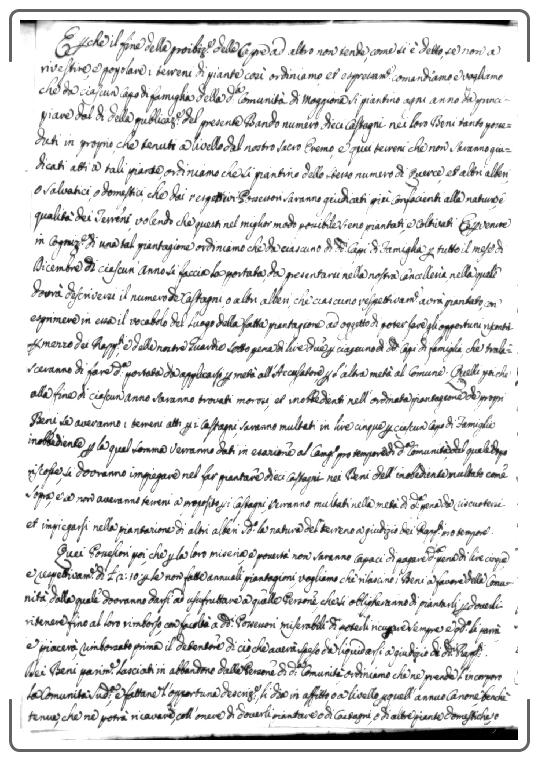 E p che il fine della proibiz.e delle Capre ad altro non tende come si è detto, se non a
rivestire e popolare i terreni di piante così ordiniamo et espressam.e comandiamo e vogliamo
che da ciascun Capo di famiglia della d.a Comunità di Moggiona si piantino ogni anno da princi-
piare dal dì della publicaz.e del presente Bando numero dieci Castagni nei loro Beni tanto posse-
duti in proprio che tenuti a livello dal nostro Sacro Eremo, e quei terreni che non saranno giu-
dicati atti a tali piante ordiniamo che si piantino dello stesso numero di Querce et altri alberi
o salvatici o domestici che dai respettivi Possessori saranno giudicati più confacienti alla natura e
qualità dei Terreni volendo che questi nel miglior modo possibile sieno piantati e coltivati E p venire
in Cogniz.e di una tal piantagione ordiniamo che da ciascuno di d.i Capi di Famiglia p tutto il mese di
Dicembre di ciascun anno si faccia la portata, da presentarsi nella nostra Cancelleria nella quale
dovrà descriversi il numero de Castagni o altri alberi che ciascuno respettivam.e avrà piantato, con
esprimere in essa il vocabolo del luogo della fatta piantagione ad oggetto di poter fare gli opportuni riscontri
p mezzo dei Rapp.ti e delle nostre Guardie sotto pena di lire due p ciascuno di d.i Capi di famiglia che trala-
sceranno di fare d.a portata da applicarsi p metà all'Accusatore e p l'altra metà al Comune. Quelli poi che
alla fine di ciascun anno saranno trovati morosi et inobbedienti nell'ordinata piantagione dei propri
Beni se averanno i terreni atti p i Castagni, saranno multati in lire cinque p ciascun Capo di Famiglia
inobbediente p la qual somma verranno dati in esazione al Camp.o pro tempore di d.a Comunità dal quale dopo
riscosse si dovranno impiegare nel far piantare dieci Castagni nei Beni dell'inobediente multato come
sopra, e se non averanno terreni a proposito p i Castagni, verranno multati nella metà di d.a pena da riscuotersi
et impiegarsi nella piantazione di altri alberi sd.o la natura del terreno a giudizio dei Rapp.ti pro tempore
Quei Possessori poi che p la loro miseria e povertà non saranno capaci di pagare d.a pena di lire cinque
e respettivam.e di £ 2: 10 p le non fatte annuali piantagioni vogliamo che rilascino i Beni a favore della Comu-
nità dalla quale dovranno darsi ad usufruttare a quelle Persone che si obbligheranno di piantarli p doverli
ritenere fino al loro rimborso con facoltà a d.i Possessori miserabili di poterli ricuperare sempre e q.do li parrà
e piacerà rimborzato prima il detentore di ciò che averà speso da liquidarsi a giudizio de d.i Rapp.ti
Dei Beni parim.e lasciati in abbandono dalle Persone di d.a Comunità ordiniamo che ne prenda l'incorporo
la Comunità sud.a e fattane l'opportuna descriz.e si dia in affitto o a livello p quell'annuo Canone benchè
tenue che ne potrà ricavare coll'onere di doverli piantare o di Castagni, o di altre piante domestiche, o